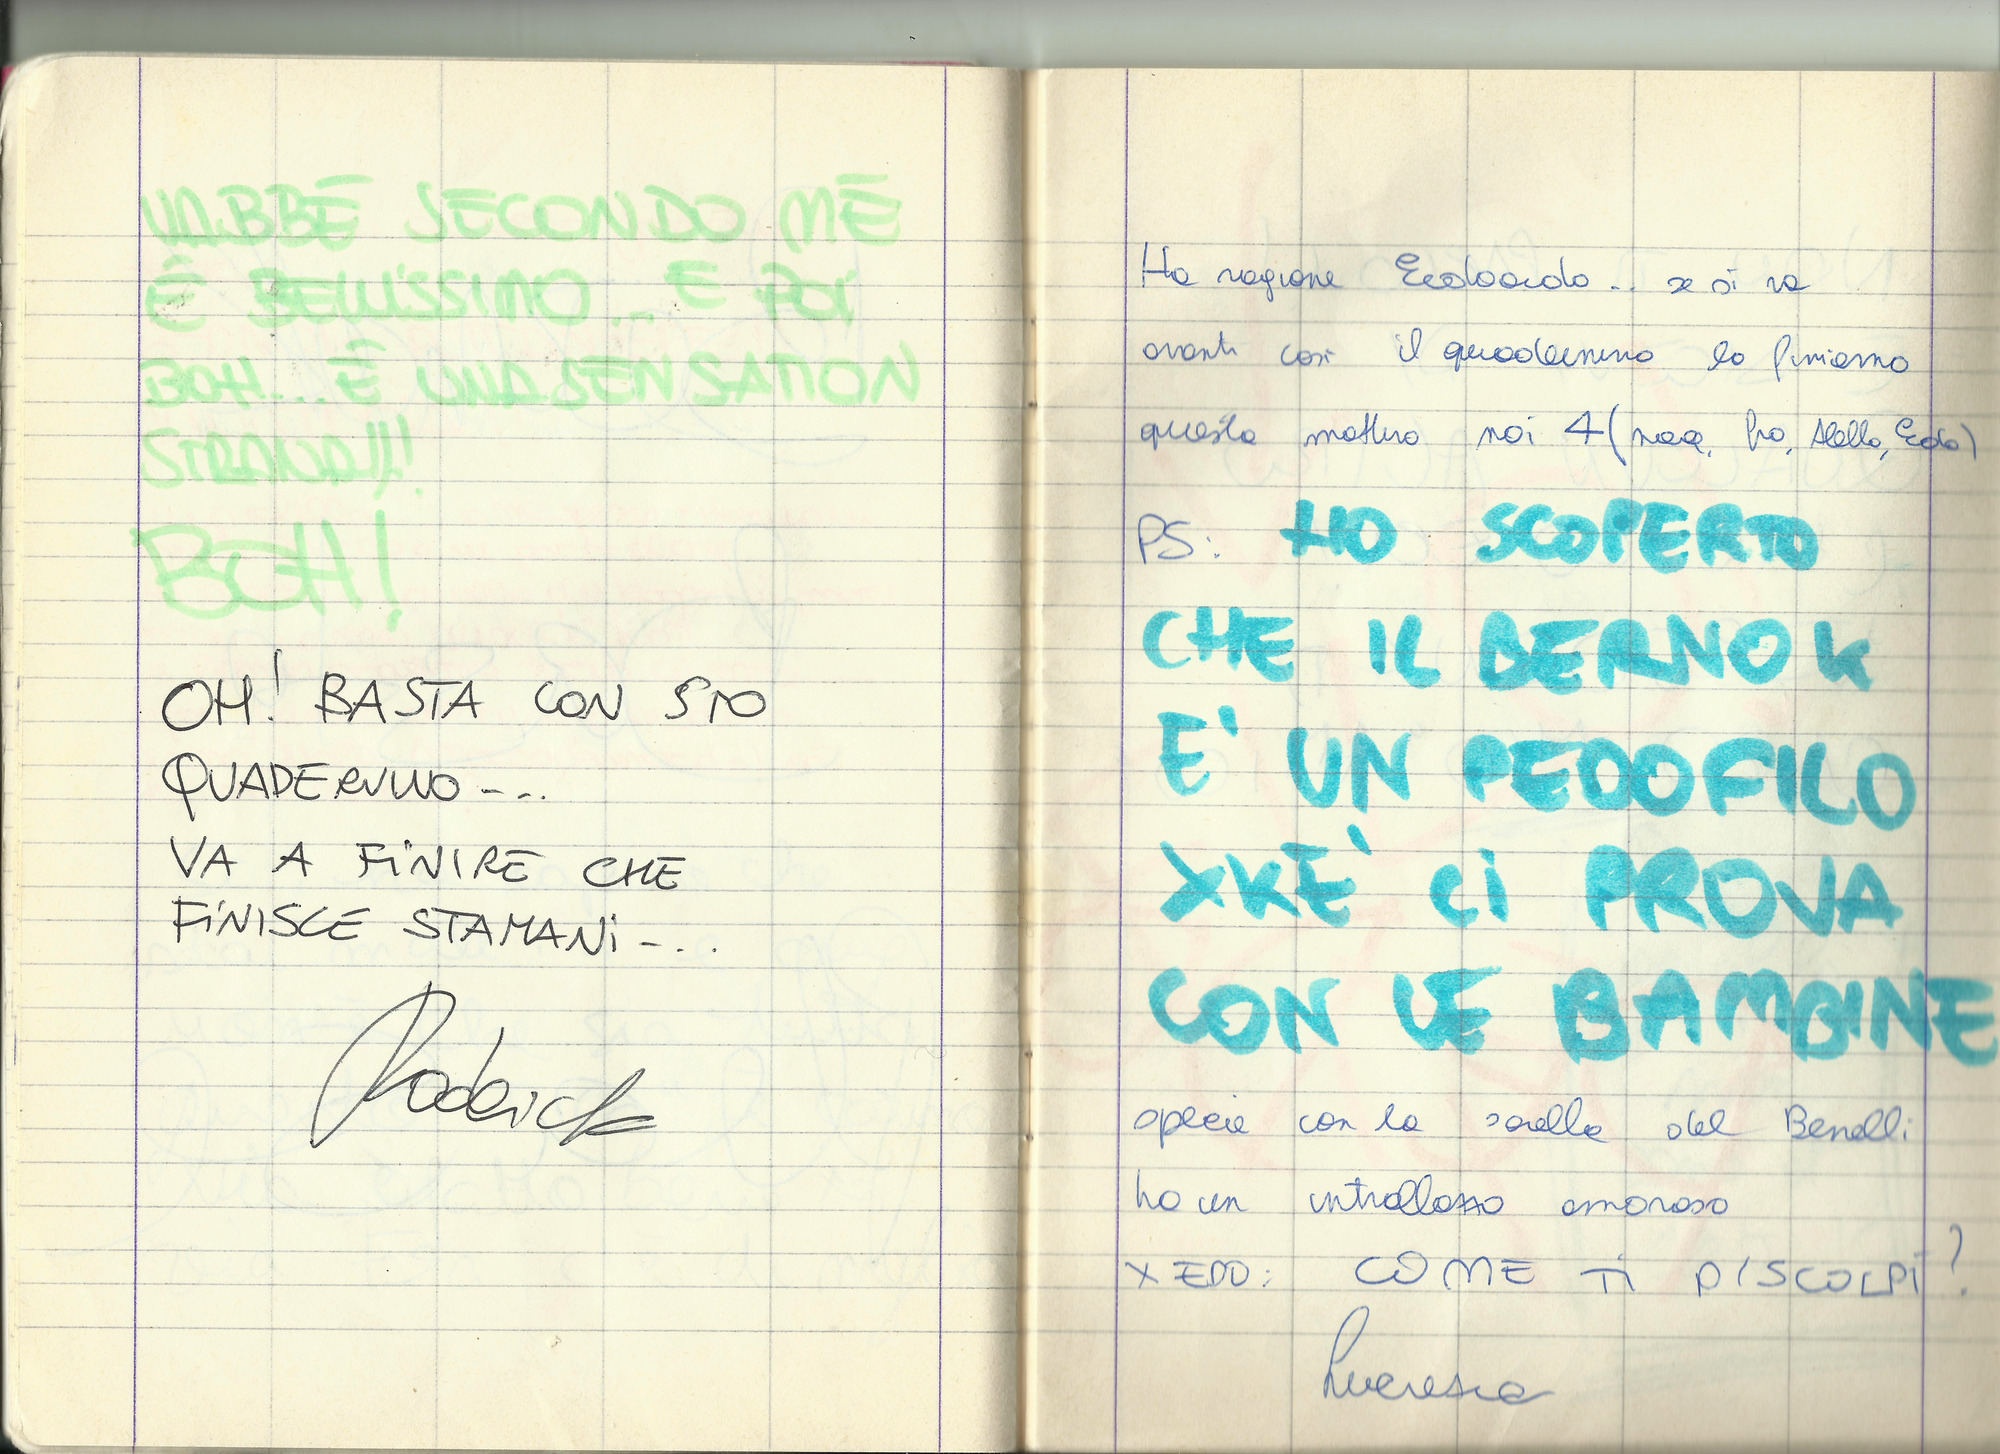 VABBÈ SECONDO ME
È BELLISSIMO... E POI
BOH... È UNA SENSATION
STRANA!!!
BOH!
OH! BASTA CON STO
QUADERNINO---
VA A FINIRE CHE
FINISCE STAMANI-...
Roderick
Ha ragione Edoardo.. se si va
avanti così il quadernino lo finiamo
questa mattina noi 4 ( Stella, Edo)
PS: HO SCOPERTO
CHE IL BERNOK
E' UN PEDOFILO
XKE' CI PROVA
CON LE BAMBINE
specie con la sorella del Benelli
ha un intrallazzo amoroso
X EDO: COME TI DISCOLPI?
Lucrezia